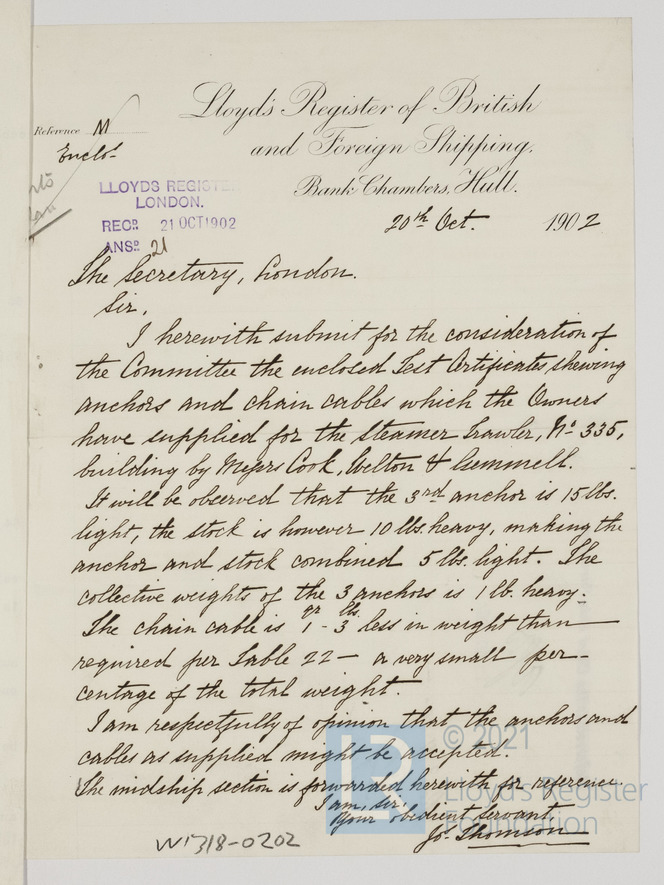 Lloyd's Register of British
and Foreign Shipping.
Bank Chambers, Hull.
Reference M
Enclos.
LLOYDS REGISTER
LONDON.
RECD. 21 OCT 1902
ANSD. 21
20th Oct. 1902
The Secretary, London.
Sir,
I herewith submit for the consideration of
the Committee the enclosed Test Certificates, shewing
anchors and chain cables which the Owners
have supplied for the Steamer Trawler, No 335,
building by Messrs Cook, Welton & Gemmell.
It will be observed that the 3rd anchor is 15 lbs.
light, the stock is however 10 lbs. heavy, making the
anchor and stock combined 5 lbs. light. The
collective weights of the 3 anchors is 1 lb. heavy.
The chain cable is 1 qr - 3 lbs. less in weight than
required per Table 22 — a very small per-
centage of the total weight.
I am respectfully of opinion that the anchors and
cables as supplied might be accepted.
The midship section is forwarded herewith for reference.
I am, sir,
Your obedient servant,
Jos. Thomson
W1318-0202
© 2021
Lloyd's Register
Foundation